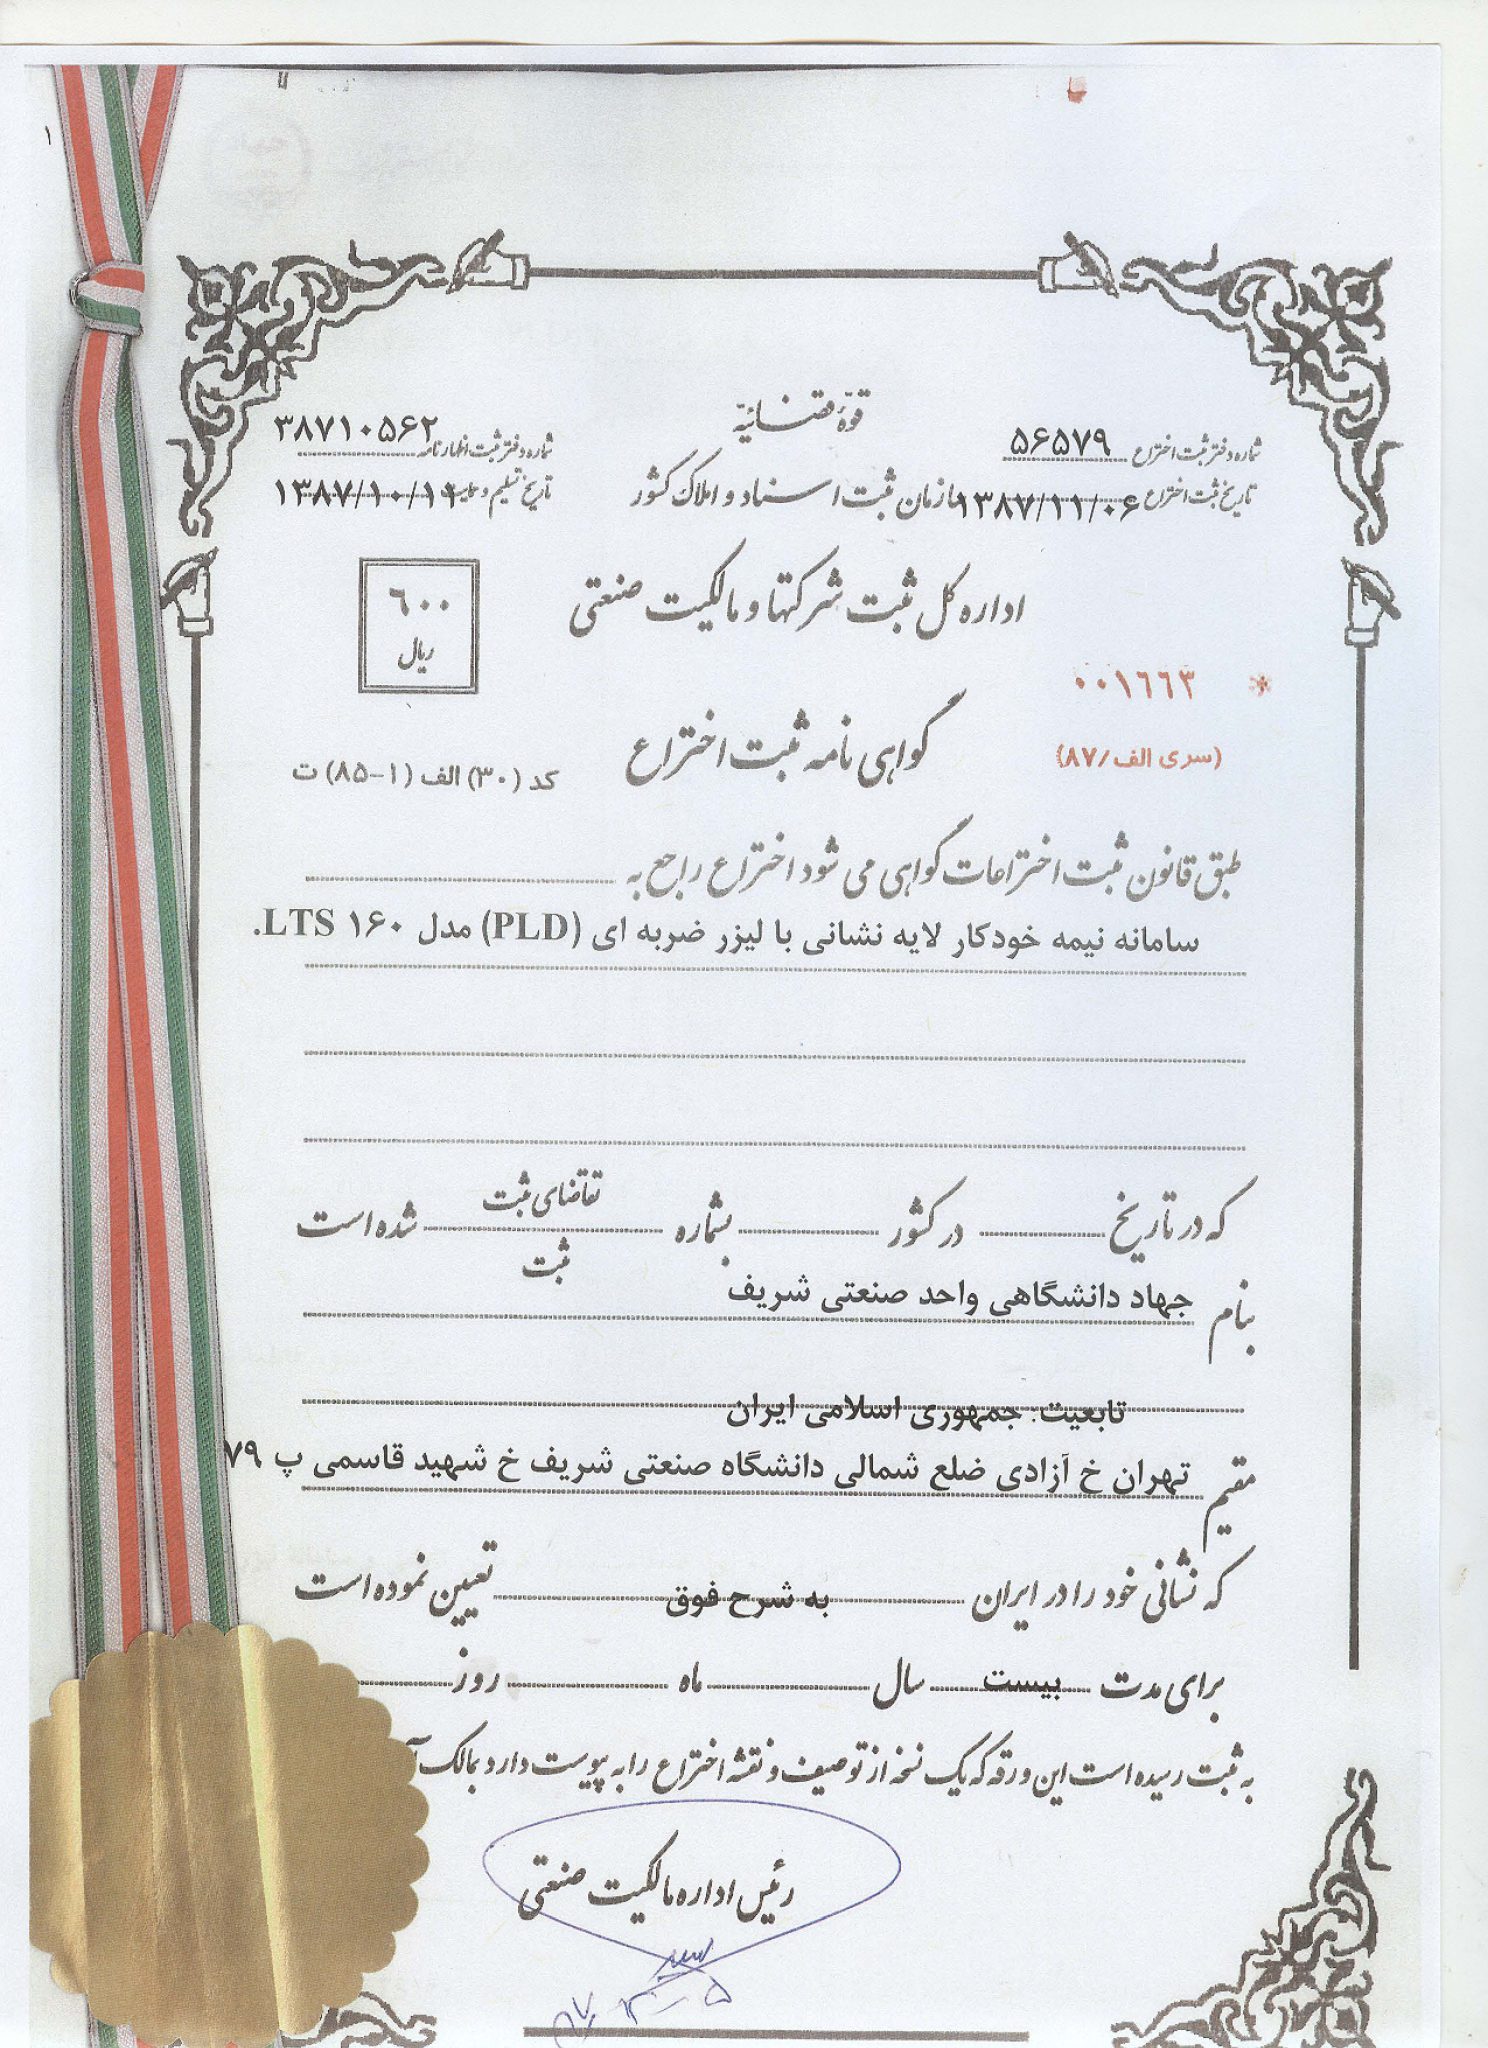 ۱
قوهٔ قضائیه
شماره دفتر ثبت اختراع ۵۶۵۷۹
شماره دفتر ثبت اظهارنامه ۳۸۷۱۰۵۶۲
تاریخ ثبت اختراع ۱۳۸۷/۱۱/۰۶
سازمان ثبت اسناد و املاک کشور
تاریخ تسلیم و ۱۳۸۷/۱۰/۱۹
اداره کل ثبت شرکتها و مالکیت صنعتی
۶۰۰
ریال
* ۰۰۱۶۶۳
(سری الف/۸۷)
گواهی نامه ثبت اختراع
کد (۳۰) الف (۱-۸۵) ت
طبق قانون ثبت اختراعات گواهی می شود اختراع راجع به
سامانه نیمه خودکار لایه نشانی با لیزر ضربه ای (PLD) مدل LTS ۱۶۰.
که در تاریخ در کشور بشماره تقاضای ثبت شده است
ثبت
بنام جهاد دانشگاهی واحد صنعتی شریف
تابعیت: جمهوری اسلامی ایران
مقیم تهران خ آزادی ضلع شمالی دانشگاه صنعتی شریف خ شهید قاسمی پ ۷۹
که نشانی خود را در ایران به شرح فوق تعیین نموده است
برای مدت بیست سال ماه روز
به ثبت رسیده است این ورقه که یک نسخه از توصیف و نقشه اختراع را به پیوست دارد بمالک
رئیس اداره مالکیت صنعتی